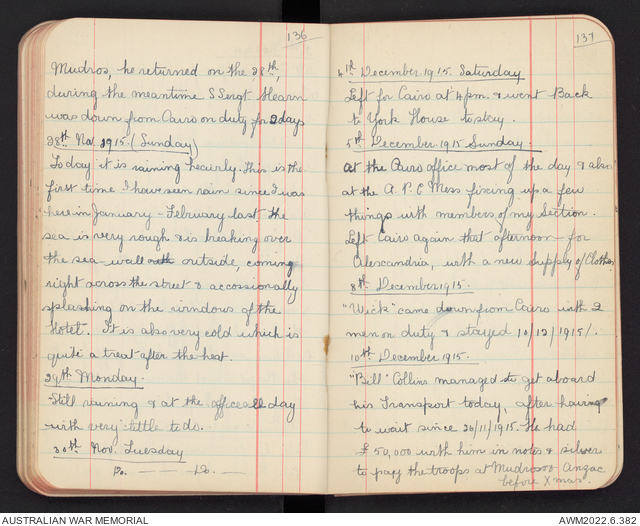 136
Mudros, he returned on the 28th,
during the meantime S Sergt Hearn
was down from Cairo on duty for 2 days
28th Nov. 1915. (Sunday)
Today it is raining heavily. This is the
first time I have seen rain since I was
here in January - February last the
sea is very rough & is breaking over
the sea-wall outside, coming
right across the street & accossionally
splashing on the windows of the
Hotel. It is also very cold which is
quite a treat after the heat.
29th Monday.
Still raining & at the office all day
with very little to do.
30th Nov. Tuesday
Do. — — — Do. —
137
4th December 1915. Saturday
Left for Cairo at 4 pm. & went Back
to York House to stay.
5th December 1915 Sunday.
At the Cairo office most of the day & also
at the A. P. C Mess fixing up a few
things with members of my Section.
Left Cairo again that afternoon for
Alexandria, with a new supply of Clothes.
8th December 1915.
"Wick" came down from Cairo with 2
men on duty & stayed 10/12/1915/.
10th December 1915.
"Bill" Collins managed to get aboard
his Transport today, after having
to wait since 26/11/1915. He had
£50,000 with him in notes & silver
to pay the troops at Mudros or Anzac
before Xmas.
AUSTRALIAN WAR MEMORIAL
AWM2022.6.382